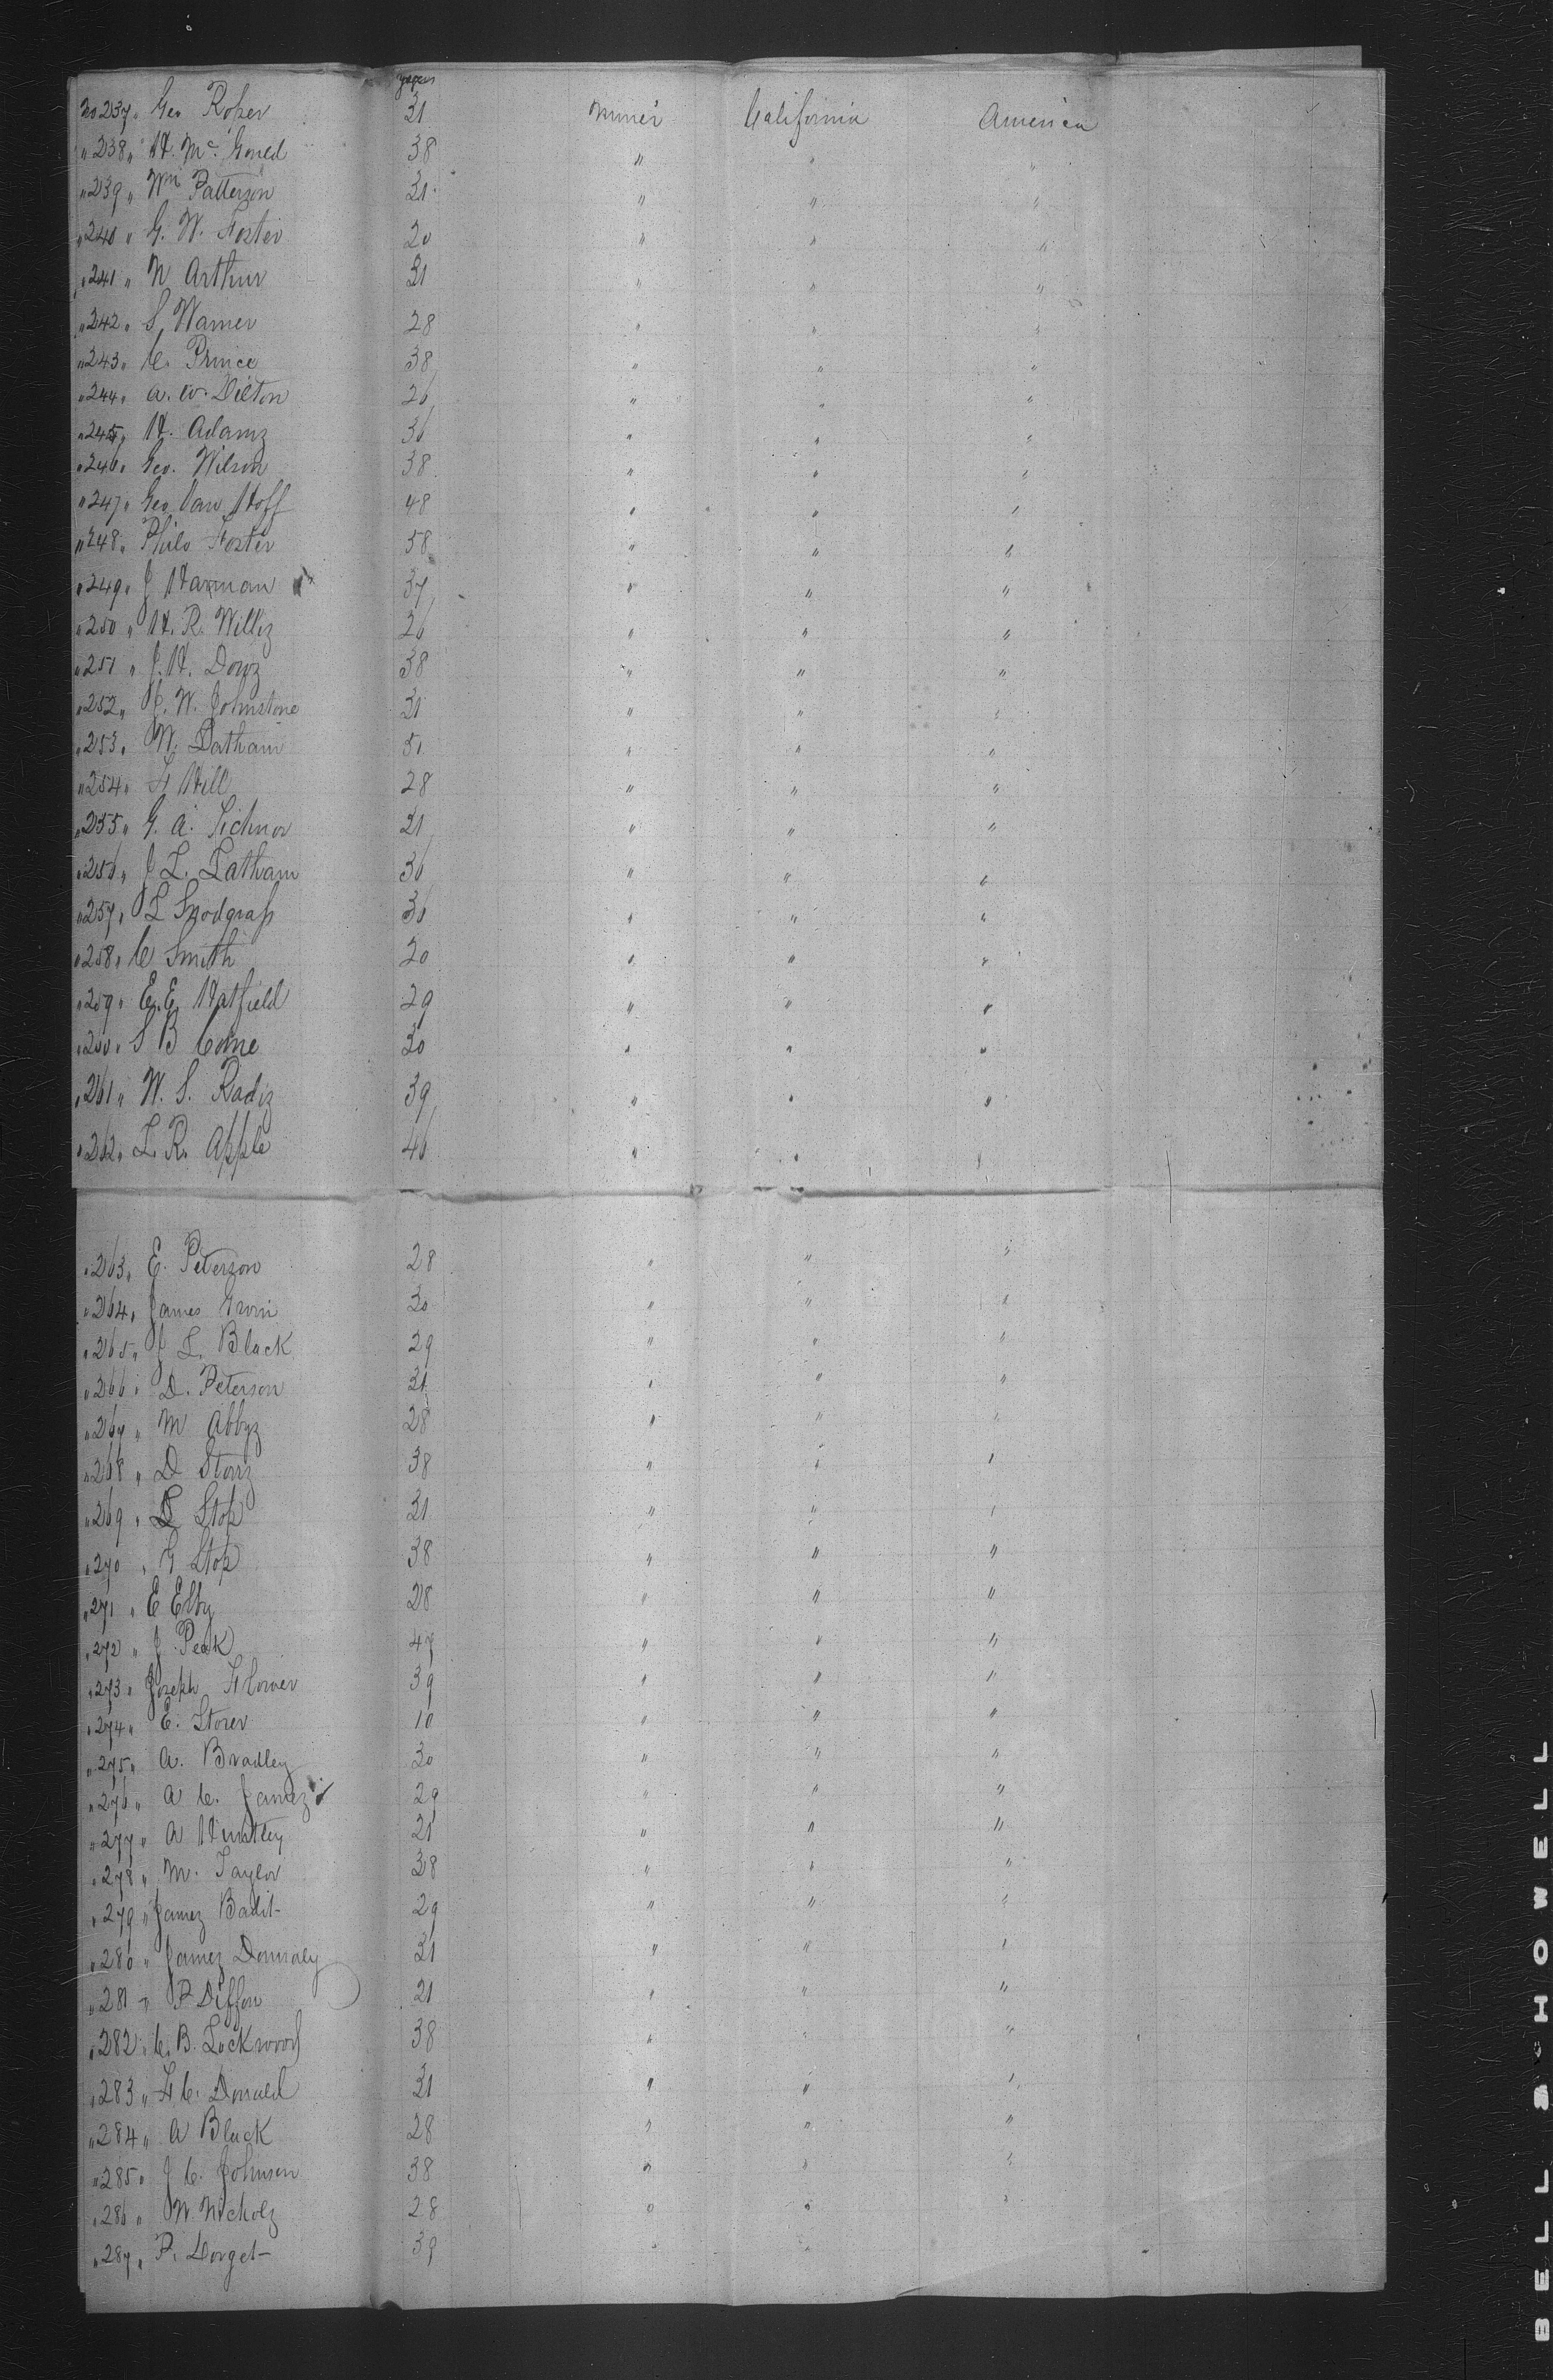 years
No 237 " Geo Roper 31 Miner California America
" 238 " H. Mc. Goued 38 " " "
" 239 " Wm Patterson 31 " " "
" 240 " G. W. Foster 20 " " "
" 241 " N Arthur 31 " " "
" 242 " S Warner 28 " " "
" 243 " C. Prince 38 " " "
" 244 " A. W. Dilton 26 " " "
" 245 " H. Adams 36 " " "
" 246 " Geo. Wilson 38 " " "
" 247 " Geo Van Hoff 48 " " "
" 248 " Philo Foster 38 " " "
" 249 " J Harman 37 " " "
" 250 " H. R. Willis 26 " " "
" 251 " J. H. Dows 38 " " "
" 252 " C. W. Johnstone 31 " " "
" 253 " W. Latham 31 " " "
" 254 " F Hill 28 " " "
" 255 " G. A. Tichnor 31 " " "
" 256 " J L. Latham 36 " " "
" 257 " L Snodgrass 36 " " "
" 258 " C Smith 20 " " "
" 259 " E. E. Hatfield 29 " " "
" 260 " S B Come 30 " " "
" 261 " W. S. Radis 39 " " "
" 262 " L. R. Apple 46 " " "
" 263 " E. Peterson 28 " " "
" 264 " James Irvin 30 " " "
" 265 " J L. Black 29 " " "
" 266 " D. Peterson 31 " " "
" 267 " M Abbys 28 " " "
" 268 " D Storrs 38 " " "
" 269 " L Stop 31 " " "
" 270 " G Stop 38 " " "
" 271 " E Elby 28 " " "
" 272 " J. Peak 47 " " "
" 273 " Joseph Flower 39 " " "
" 274 " E. Storer 10 " " "
" 275 " A. Bradley 30 " " "
" 276 " A C. James 29 " " "
" 277 " A Huntley 21 " " "
" 278 " M. Taylor 38 " " "
" 279 " James Badit 29 " " "
" 280 " James Donnaly 31 " " "
" 281 " P Diffon 21 " " "
" 282 " C. B. Lockwood 38 " " "
" 283 " F C. Donald 31 " " "
" 284 " A Black 28 " " "
" 285 " J C. Johnson 38 " " "
" 286 " W. Nichols 28 " " "
" 287 " P. Dorget 39 " "
BELL & HOWELL